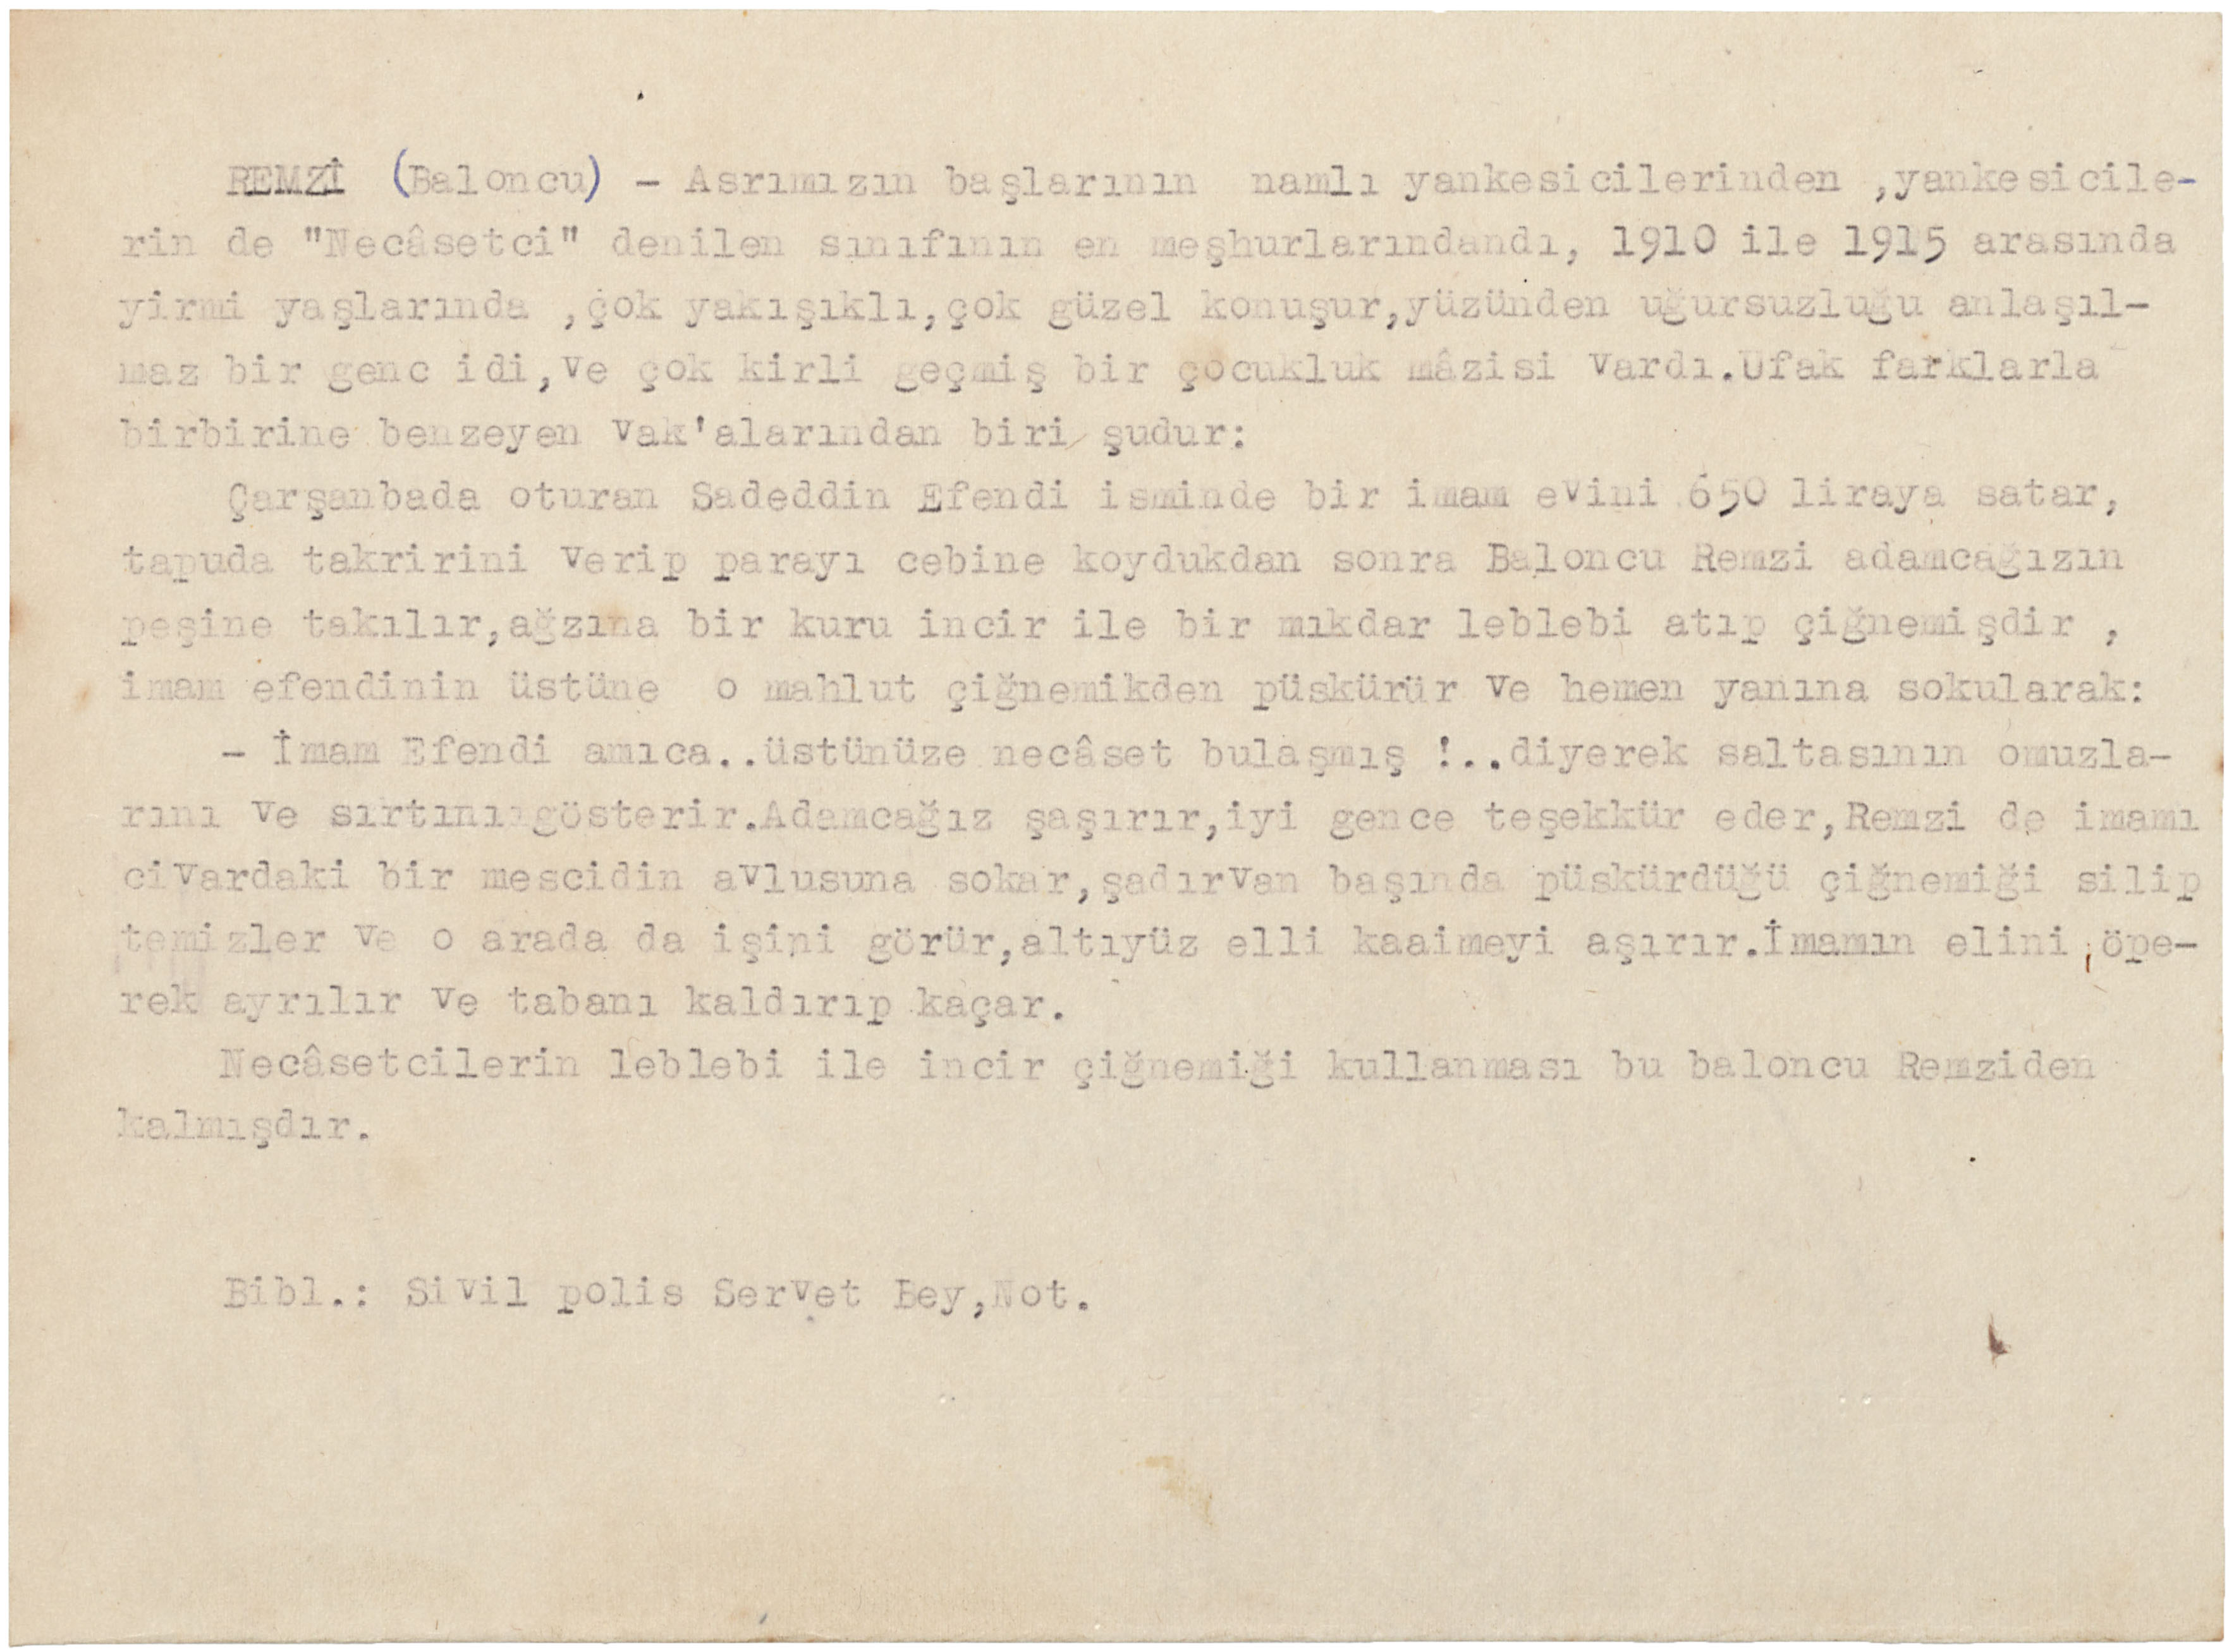 REMZİ (Baloncu) - Asrımızın başlarının namlı yankesicilerinden ,yankesicile-
rin de "Necâsetci" denilen sınıfının en meşhurlarındandı, 1910 ile 1915 arasında
yirmi yaşlarında ,çok yakışıklı,çok güzel konuşur,yüzünden uğursuzluğu anlaşıl-
maz bir genc idi,ve çok kirli geçmiş bir çocukluk mâzisi vardı.Ufak farklarla
birbirine benzeyen vak'alarından biri şudur:
Çarşanbada oturan Sadeddin Efendi isminde bir imam evini 650 liraya satar,
tapuda takririni verip parayı cebine koydukdan sonra Baloncu Remzi adamcağızın
peşine takılır,ağzına bir kuru incir ile bir mıkdar leblebi atıp çiğnemişdir ,
imam efendinin üstüne o mahlut çiğnemikden püskürür ve hemen yanına sokularak:
- İmam Efendi amıca..üstünüze necâset bulaşmış !..diyerek saltasının omuzla-
rını ve sırtını gösterir.Adamcağız şaşırır,iyi gence teşekkür eder,Remzi de imamı
civardaki bir mescidin avlusuna sokar,şadırvan başında püskürdüğü çiğnemiği silip
temizler ve o arada da işini görür,altıyüz elli kaaimeyi aşırır.İmamın elini öpe-
rek ayrılır ve tabanı kaldırıp kaçar.
Necâsetcilerin leblebi ile incir çiğnemiği kullanması bu baloncu Remziden
kalmışdır.
Bibl.: Sivil polis Servet Bey,Not.